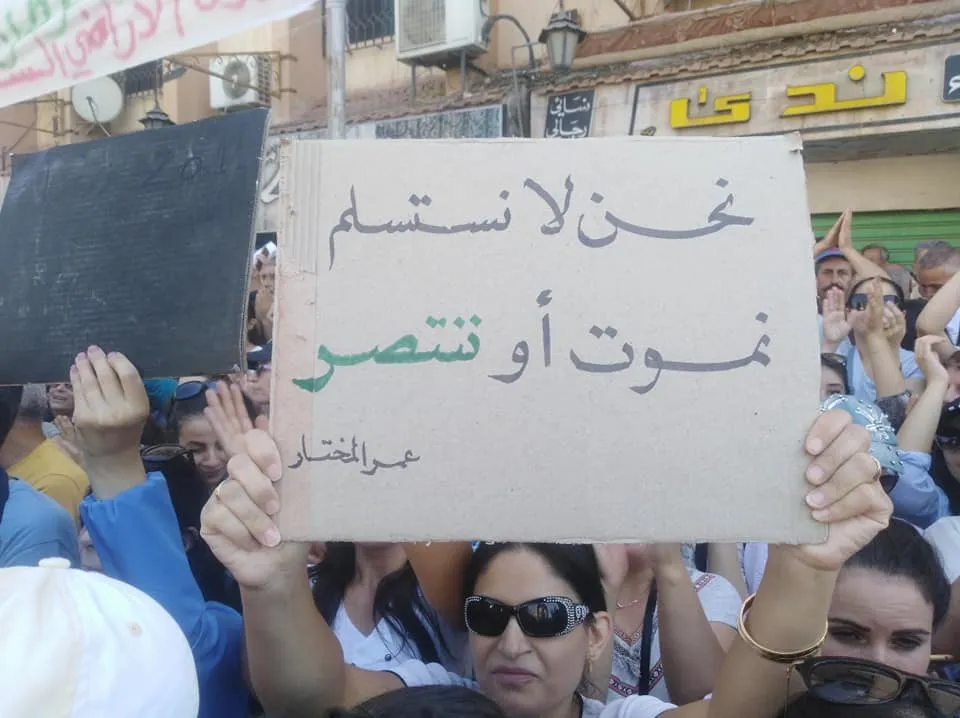 الأراضي
نسائي
رجالي
ندى
نحن لا نستسلم
نموت أو ننتصر
عمر المختار